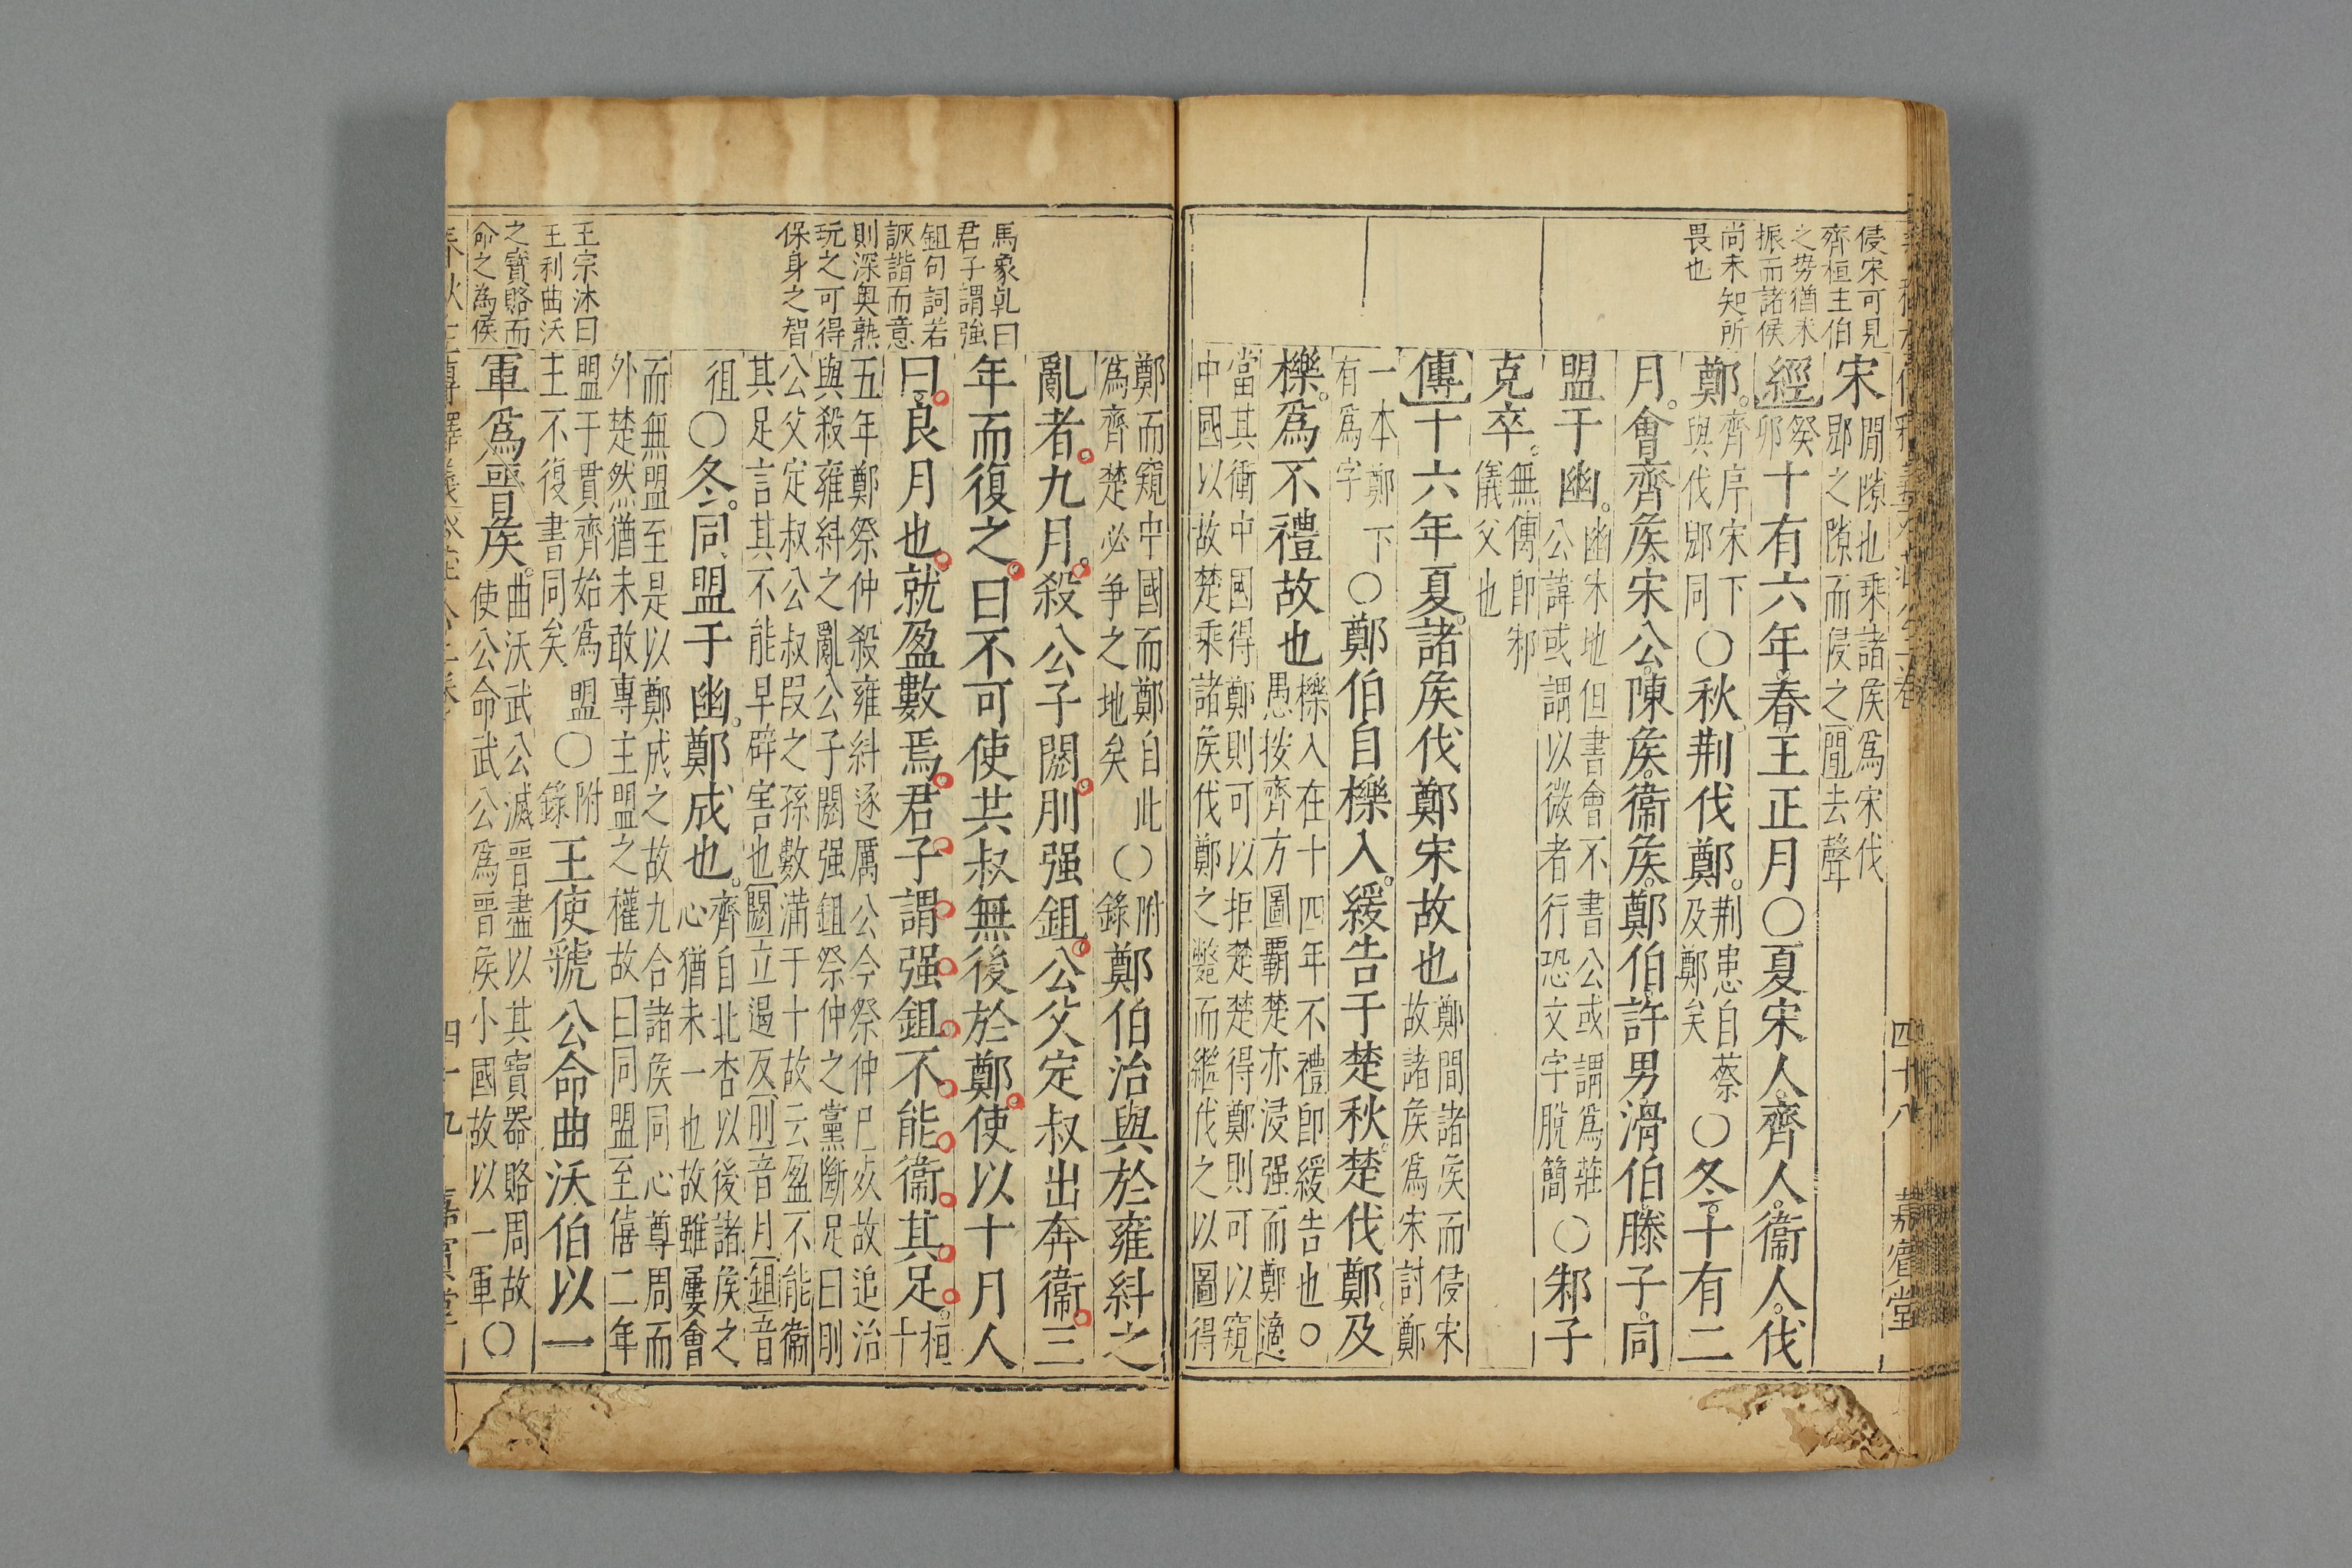 侵宋可見
齊桓主伯
之勢猶未
振而諸侯
尚未知所
畏也
四十八
嘉賓堂
宋間隙也乘諸矦爲宋伐
郳之隙而侵之間去聲
經癸卯十有六年春王正月○夏宋人齊人衞人伐
鄭齊序宋下與伐郳同○秋荆伐鄭荆患自蔡及鄭矣○冬十有二
月會齊矦宋公陳矦衞矦鄭伯許男滑伯滕子同
盟于幽幽宋地但書會不書公或謂爲莊公諱或謂以微者行恐文字脫簡○邾子
克卒無傳卽邾儀父也
傳十六年夏諸矦伐鄭宋故也鄭間諸矦而侵宋故諸矦爲宋討鄭
一本鄭下有爲字○鄭伯自櫟入緩告于楚秋楚伐鄭及
櫟爲不禮故也櫟入在十四年不禮卽緩告也○愚按齊方圖覇楚亦浸强而鄭適
當其衝中國得鄭則可以拒楚楚得鄭則可以窺
中國以故楚乘諸矦伐鄭之斃而繼伐之以圖得
鄭而窺中國而鄭自此○附
爲齊楚必爭之地矣錄鄭伯治與於雍糾之
亂者九月殺公子閼刖强鉏公父定叔出奔衞三
年而復之曰不可使共叔無後於鄭使以十月入
曰良月也就盈數焉君子謂强鉏不能衞其足桓十
五年鄭祭仲殺雍糾逐厲公今祭仲已死故追治
與殺雍糾之亂公子閼强鉏祭仲之黨斷足曰刖
公父定叔公叔段之孫數滿于十故云盈不能衞
其足言其不能早辟害也閼立遏反刖音月鉏音
徂○冬同盟于幽鄭成也齊自北杏以後諸矦之心猶未一也故雖屢會
而無盟至是以鄭成之故九合諸矦同心尊周而
外楚然猶未敢專主盟之權故曰同盟至僖二年
盟于貫齊始爲盟主不復書同矣○附錄王使虢公命曲沃伯以一
軍爲晉矦曲沃武公滅晉盡以其寶器賂周故使公命武公爲晉矦小國故以一軍○
馬象乾曰
君子謂強
鉏句詞若
詼諧而意
則深奥熟
玩之可得
保身之智
王宗沐曰
王利曲沃
之寶賂而
命之為侯
春秋左傳釋義
四十九